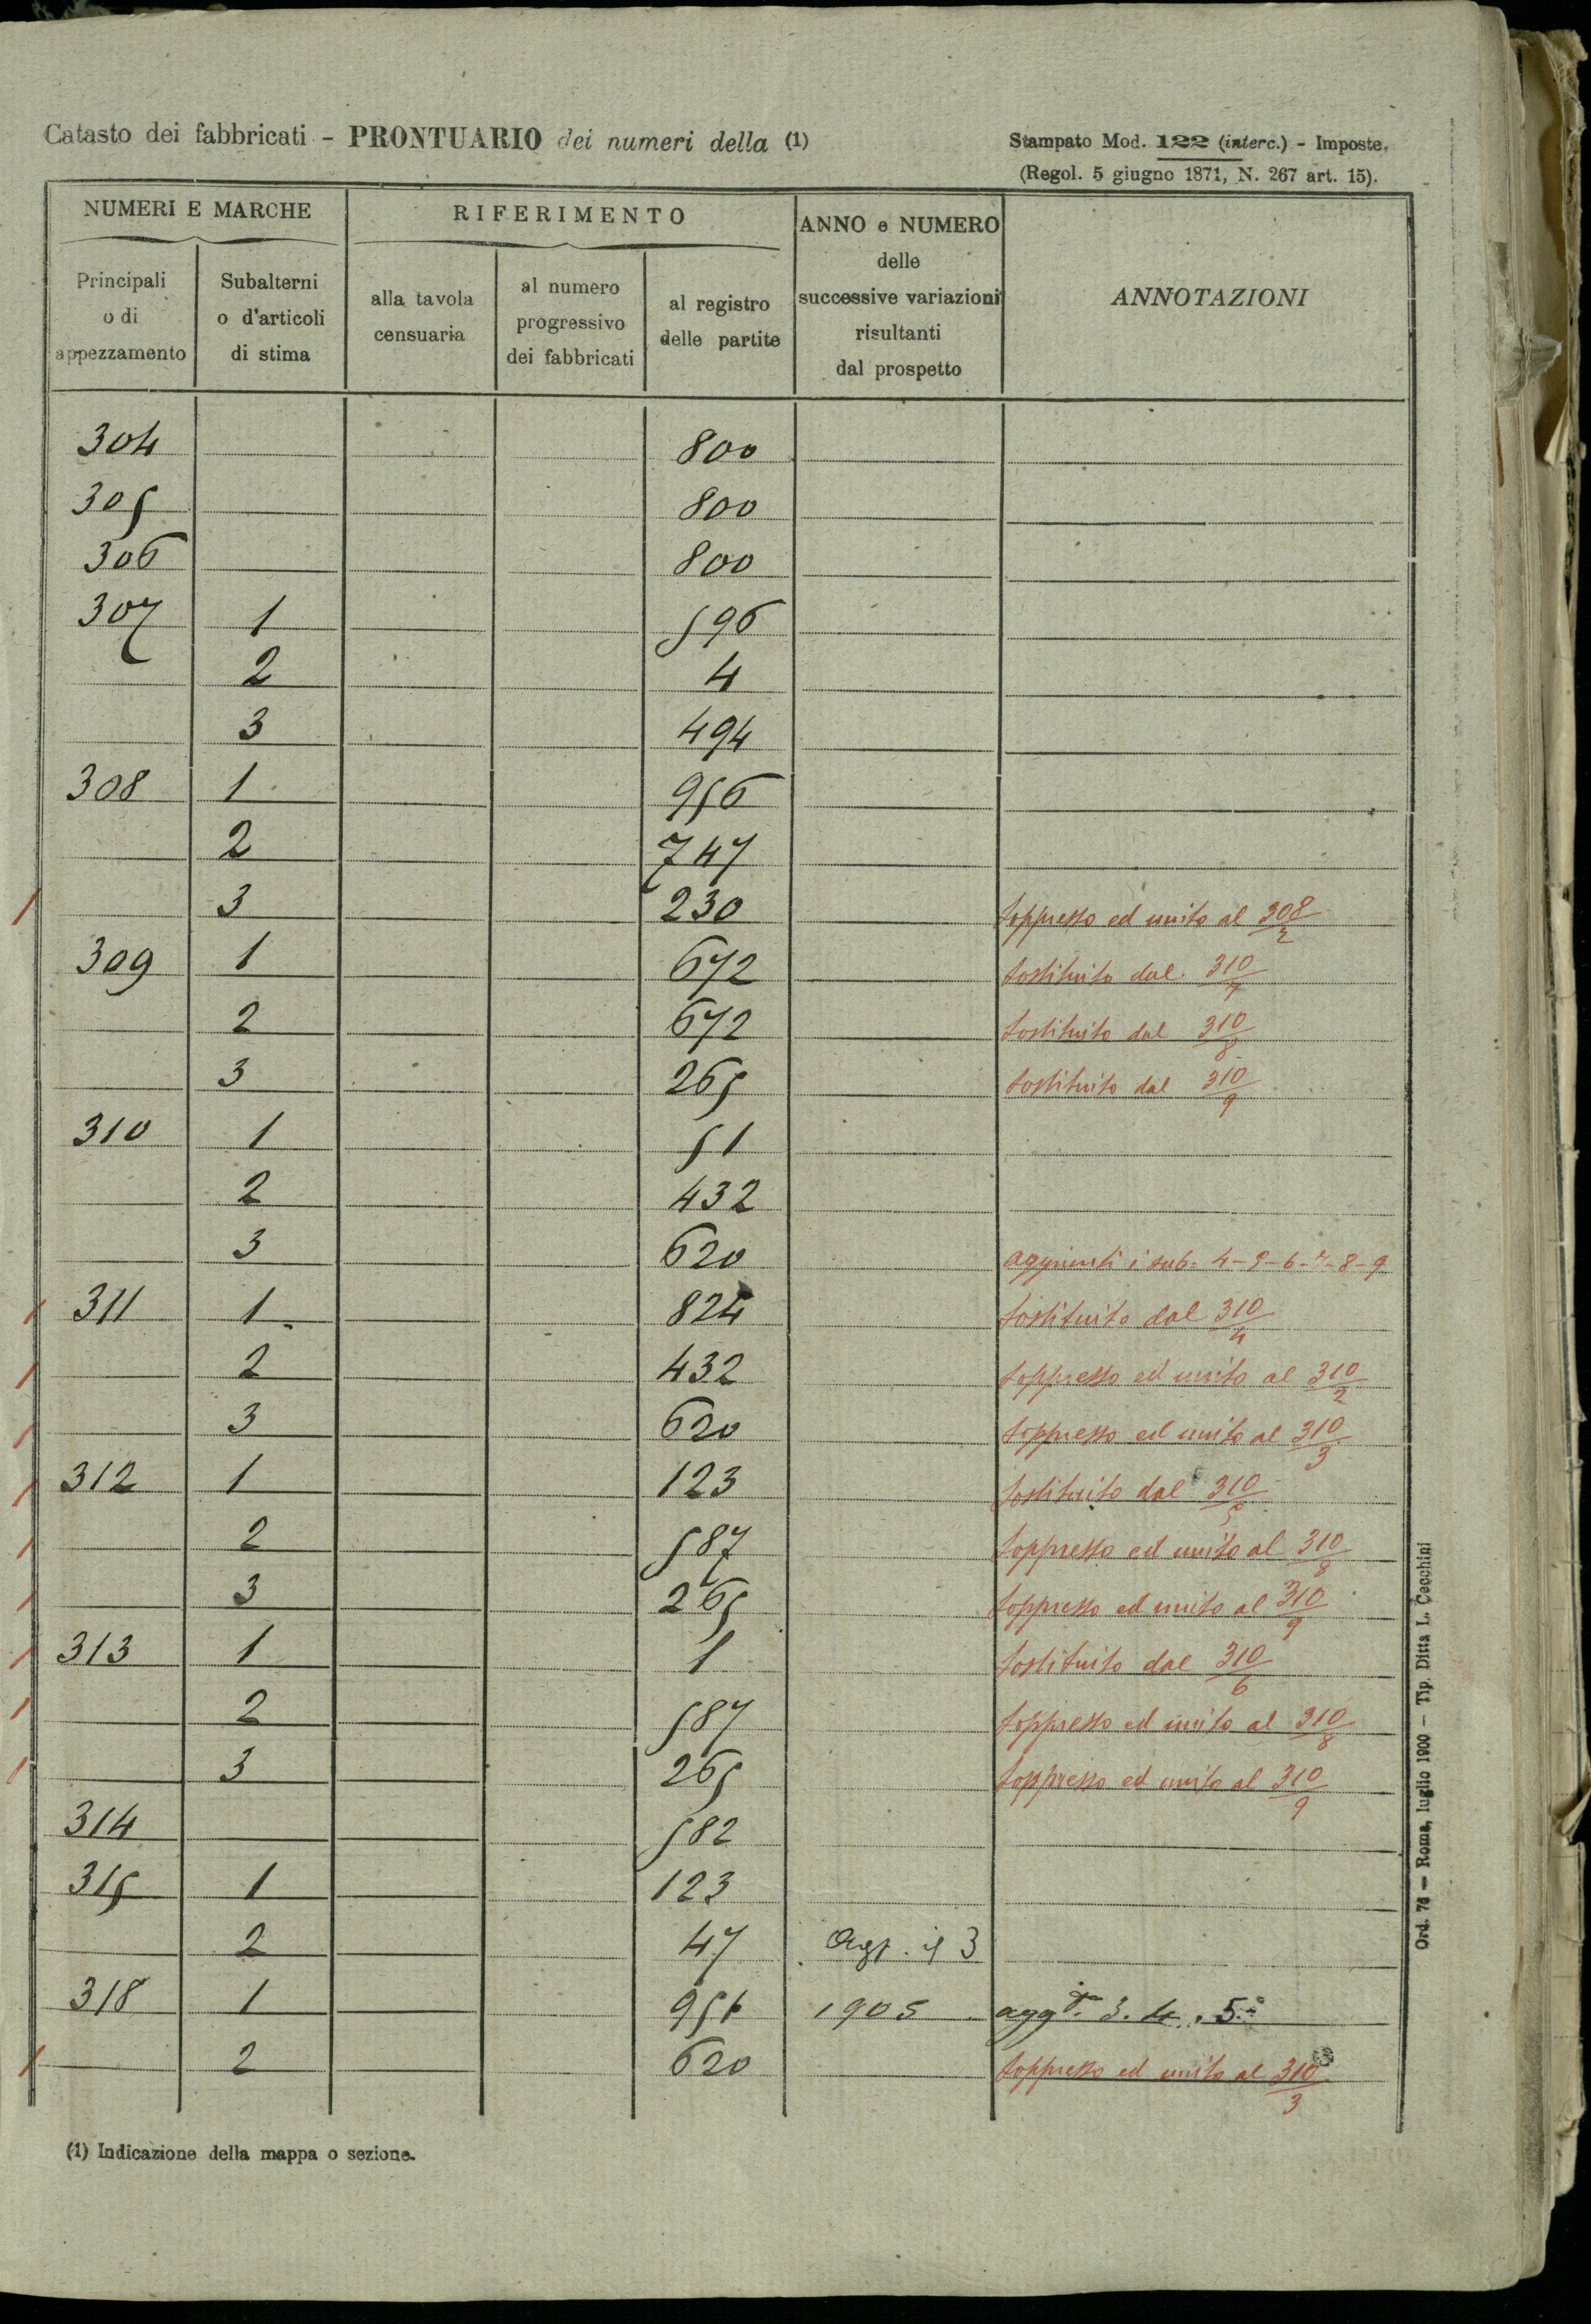 Catasto dei fabbricati - PRONTUARIO dei numeri della (1)
Stampato Mod. 122 (interc.) - Imposte.
(Regol. 5 giugno 1871, N. 267 art. 15).
NUMERI E MARCHE
RIFERIMENTO
ANNO e NUMERO
delle
successive variazioni
risultanti
dal prospetto
ANNOTAZIONI
Principali
o di
appezzamento
Subalterni
o d'articoli
di stima
alla tavola
censuaria
al numero
progressivo
dei fabbricati
al registro
delle partite
304 800
305 800
306 800
307 1 596
2 4
3 494
308 1 956
2 747
3 230 soppresso ed unito al 308/2
309 1 672 sostituito dal 310/7
2 672 sostituito dal 310/8
3 265 sostituito dal 310/9
310 1 51
2 432
3 620 aggiunti i sub. 4-5-6-7-8-9
311 1 824 sostituito dal 310/4
2 432 soppresso ed unito al 310/2
3 620 soppresso ed unito al 310/3
312 1 123 sostituito dal 310/5
2 587 soppresso ed unito al 310/8
3 265 soppresso ed unito al 310/9
313 1 1 sostituito dal 310/6
2 587 soppresso ed unito al 310/8
3 265 soppresso ed unito al 310/9
314 582
315 1 123
2 47 Agg. il 3
318 1 956 1905 agg.ti 3. 4. 5
2 620 soppresso ed unito al 310/3
(1) Indicazione della mappa o sezione.
Ord. 74 — Roma, luglio 1900 — Tip. Ditta L. Cecchini